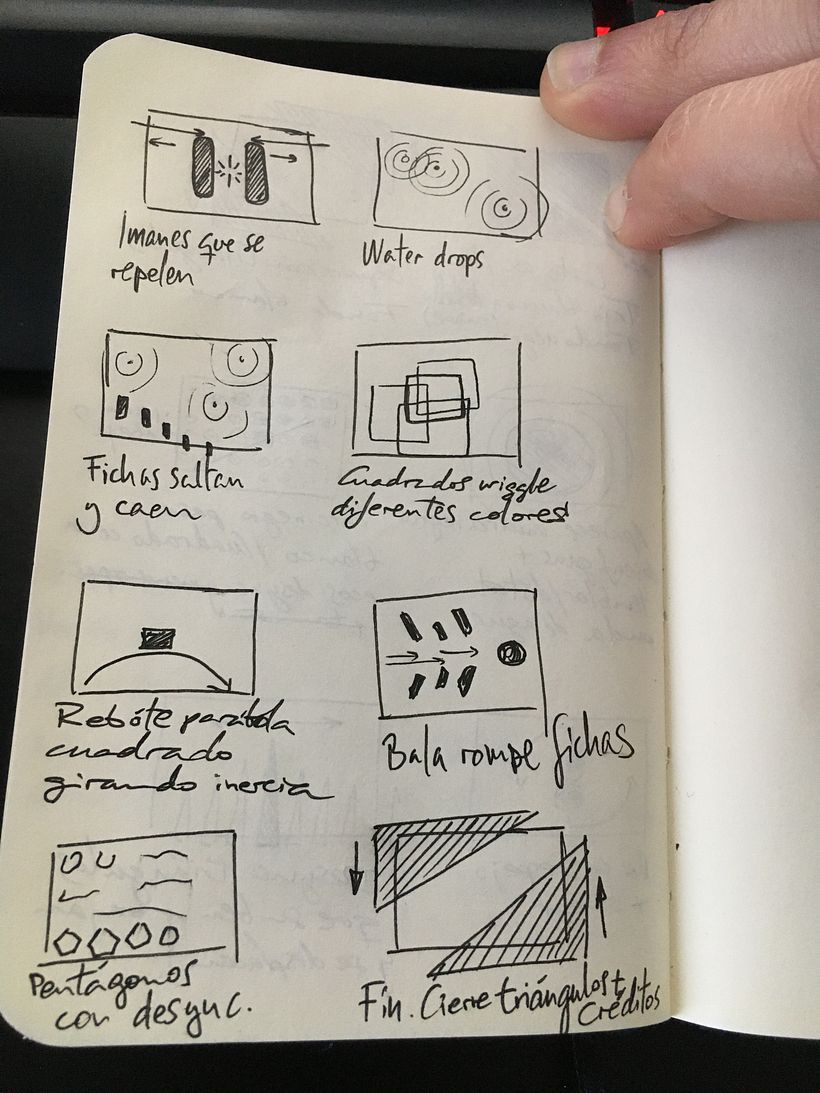 Imanes que se
repelen
Water drops
Fichas saltan
y caen
Cuadrados wiggle
diferentes colores
Rebóte parábola
cuadrado
girando inercia
Bala rompe fichas
Pentágonos
con desync.
Fin. Cierre triángulos +
Créditos